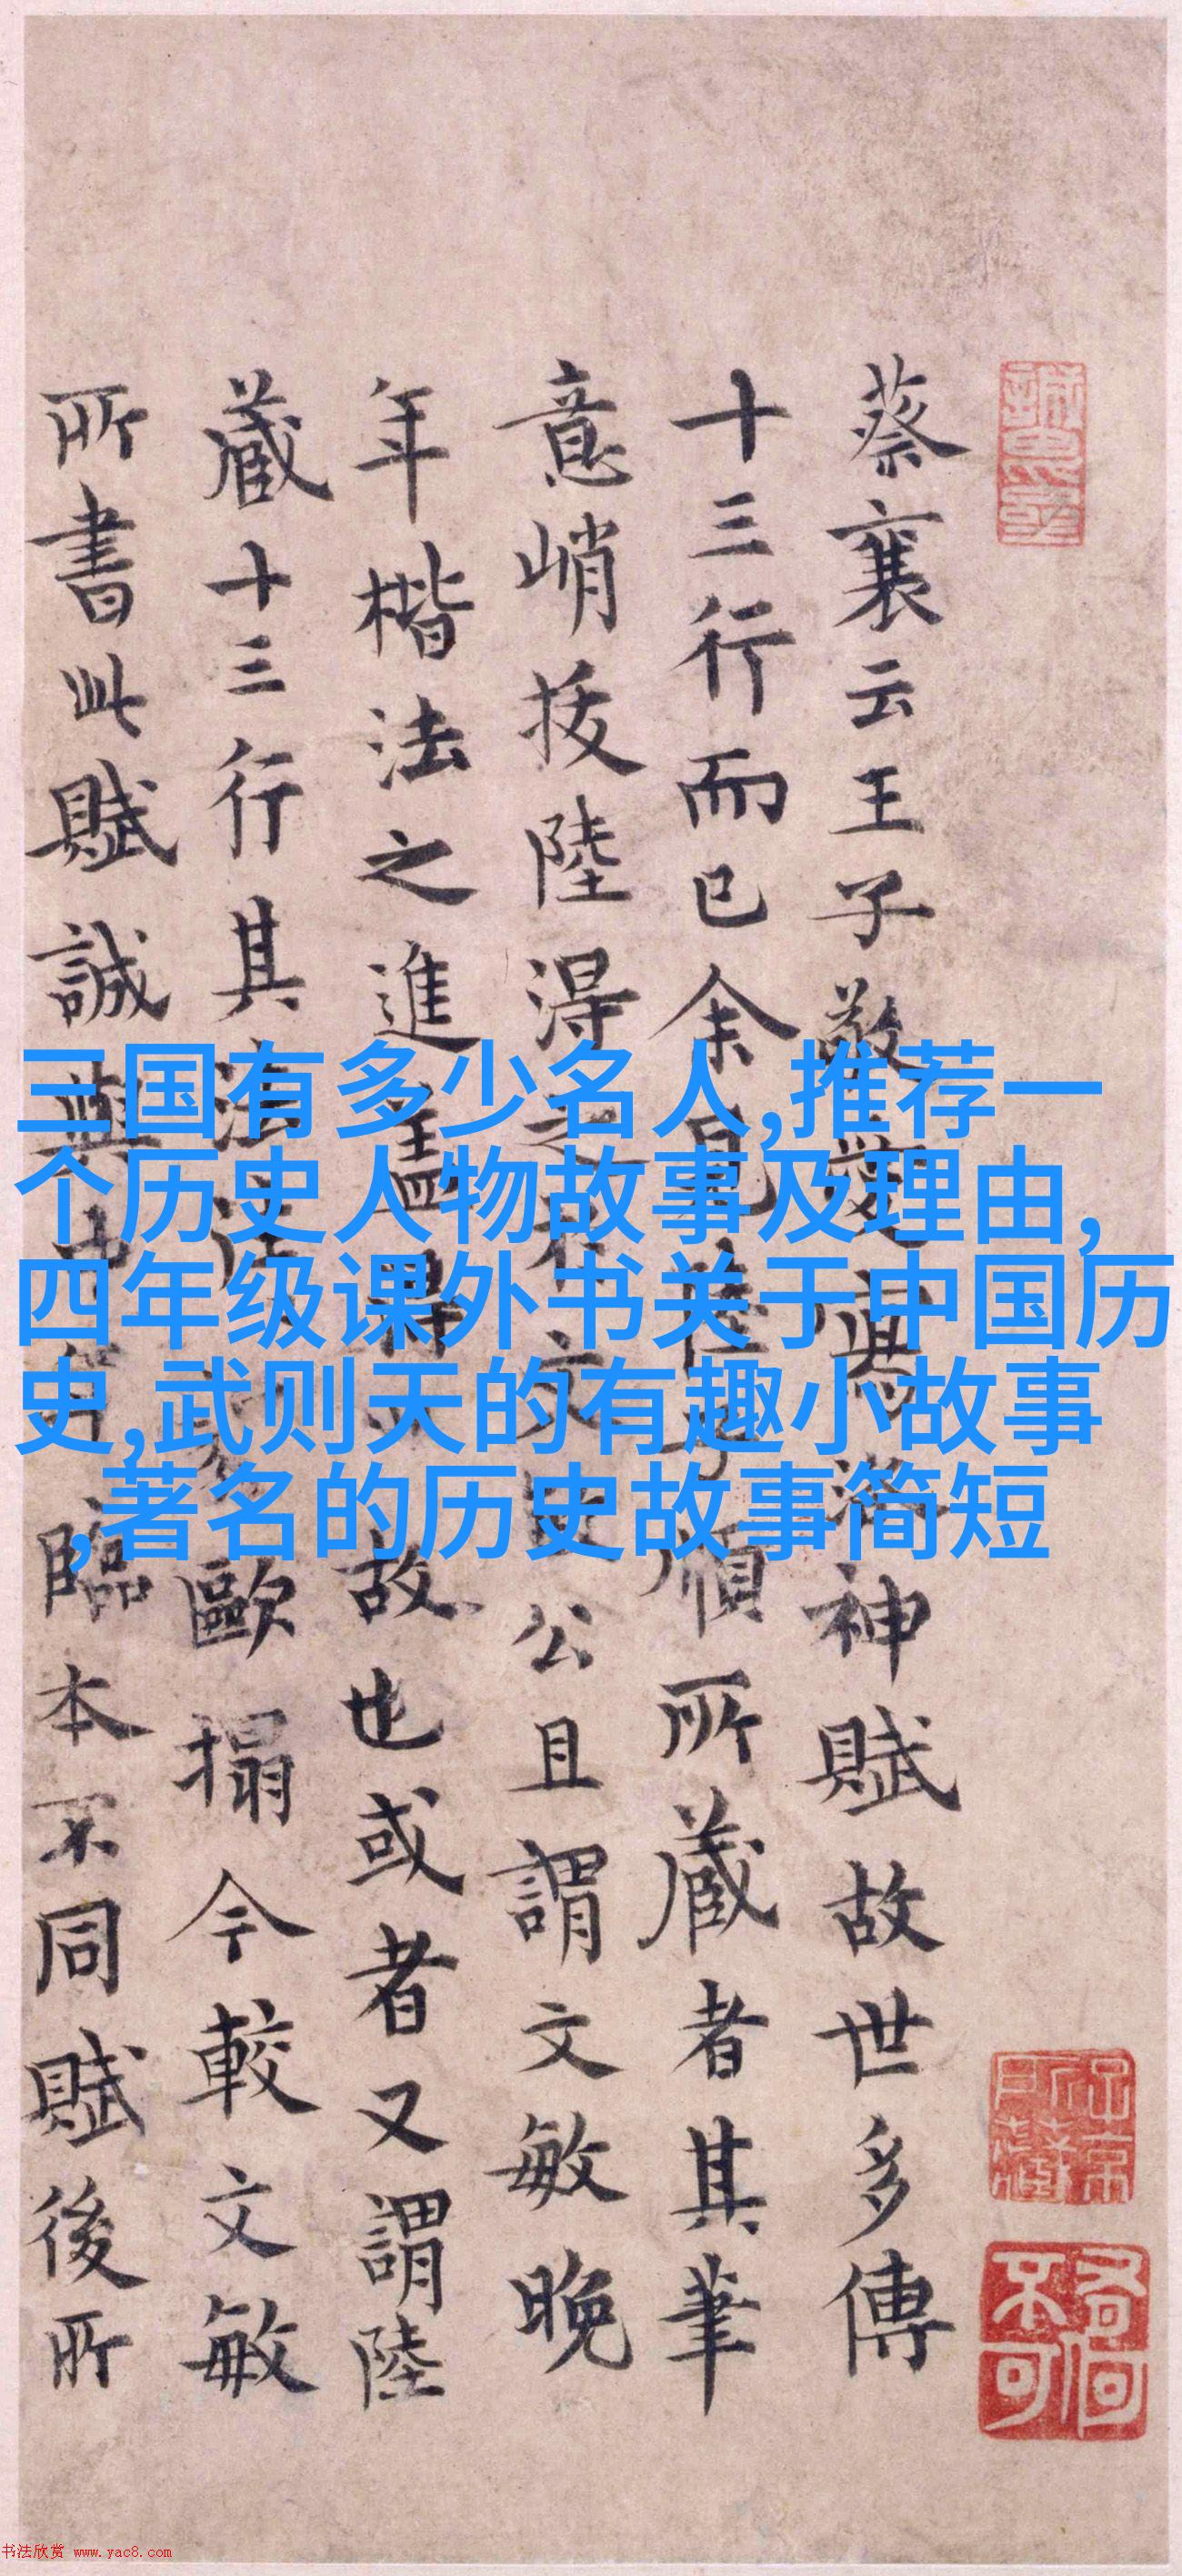 蔡襄云王子敬
神賦故世多傳
十三行而已余見
順所蔵者其筆
意峭拔陸得
公且謂文敏晚
年楷法之進
故也或者又謂陸
蔵十三行其法
歐搨今較文敏
所書此賦誠與
臨本不同賦後所
三国有多少名人,推荐一
个历史人物故事及理由,
四年级课外书关于中国历
史,武则天的有趣小故事
,著名的历史故事简短
书法欣赏 www.yac8.com